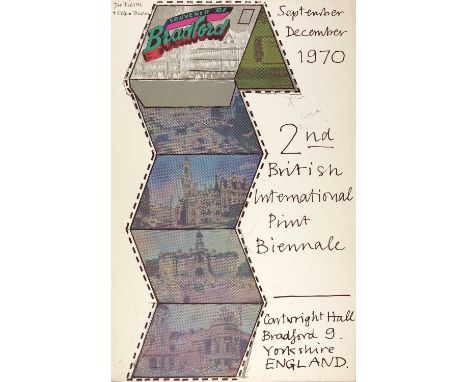 SOUVENIR OF
Bradford
September
December
1970
2nd
British
International
Print
Biennale
Cartwright Hall
Bradford 9.
Yorkshire
ENGLAND.